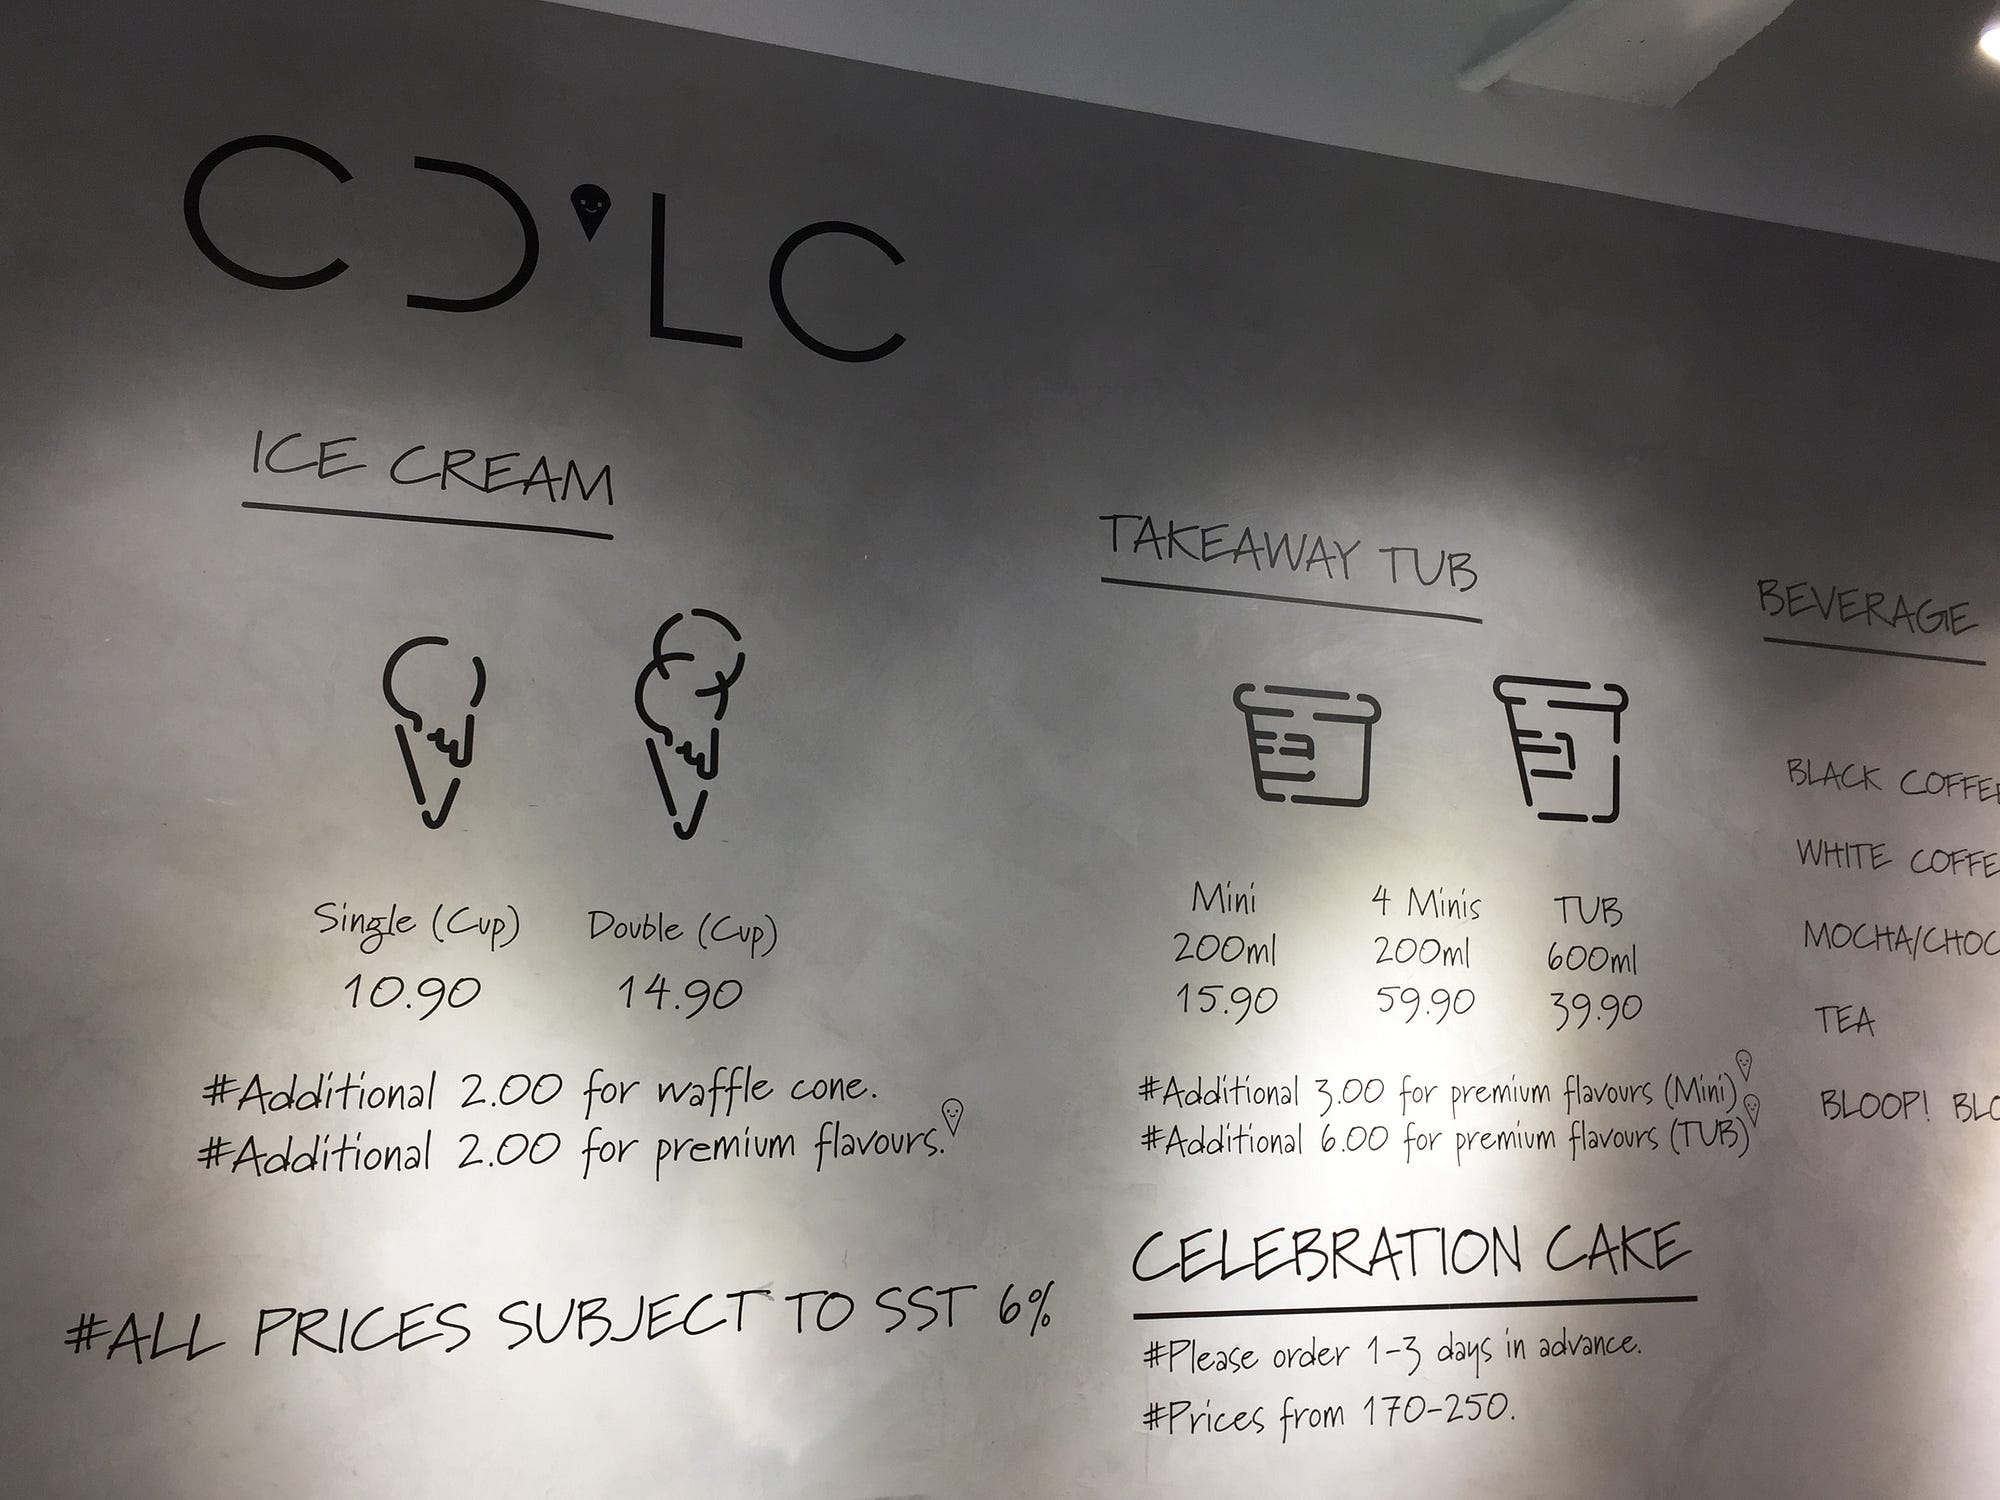 CD'LC
ICE CREAM
Single (Cup)
10.90
Double (Cup)
14.90
#Additional 2.00 for waffle cone.
#Additional 2.00 for premium flavours.
#ALL PRICES SUBJECT TO SST 6%
TAKEAWAY TUB
Mini
200ml
15.90
4 Minis
200ml
59.90
TUB
600ml
39.90
#Additional 3.00 for premium flavours (Mini)
#Additional 6.00 for premium flavours (TUB)
CELEBRATION CAKE
#Please order 1-3 days in advance.
#Prices from 170-250.
BEVERAGE
BLACK COFFEE
WHITE COFFE
MOCHA/CHOC
TEA
BLOOP! BLO